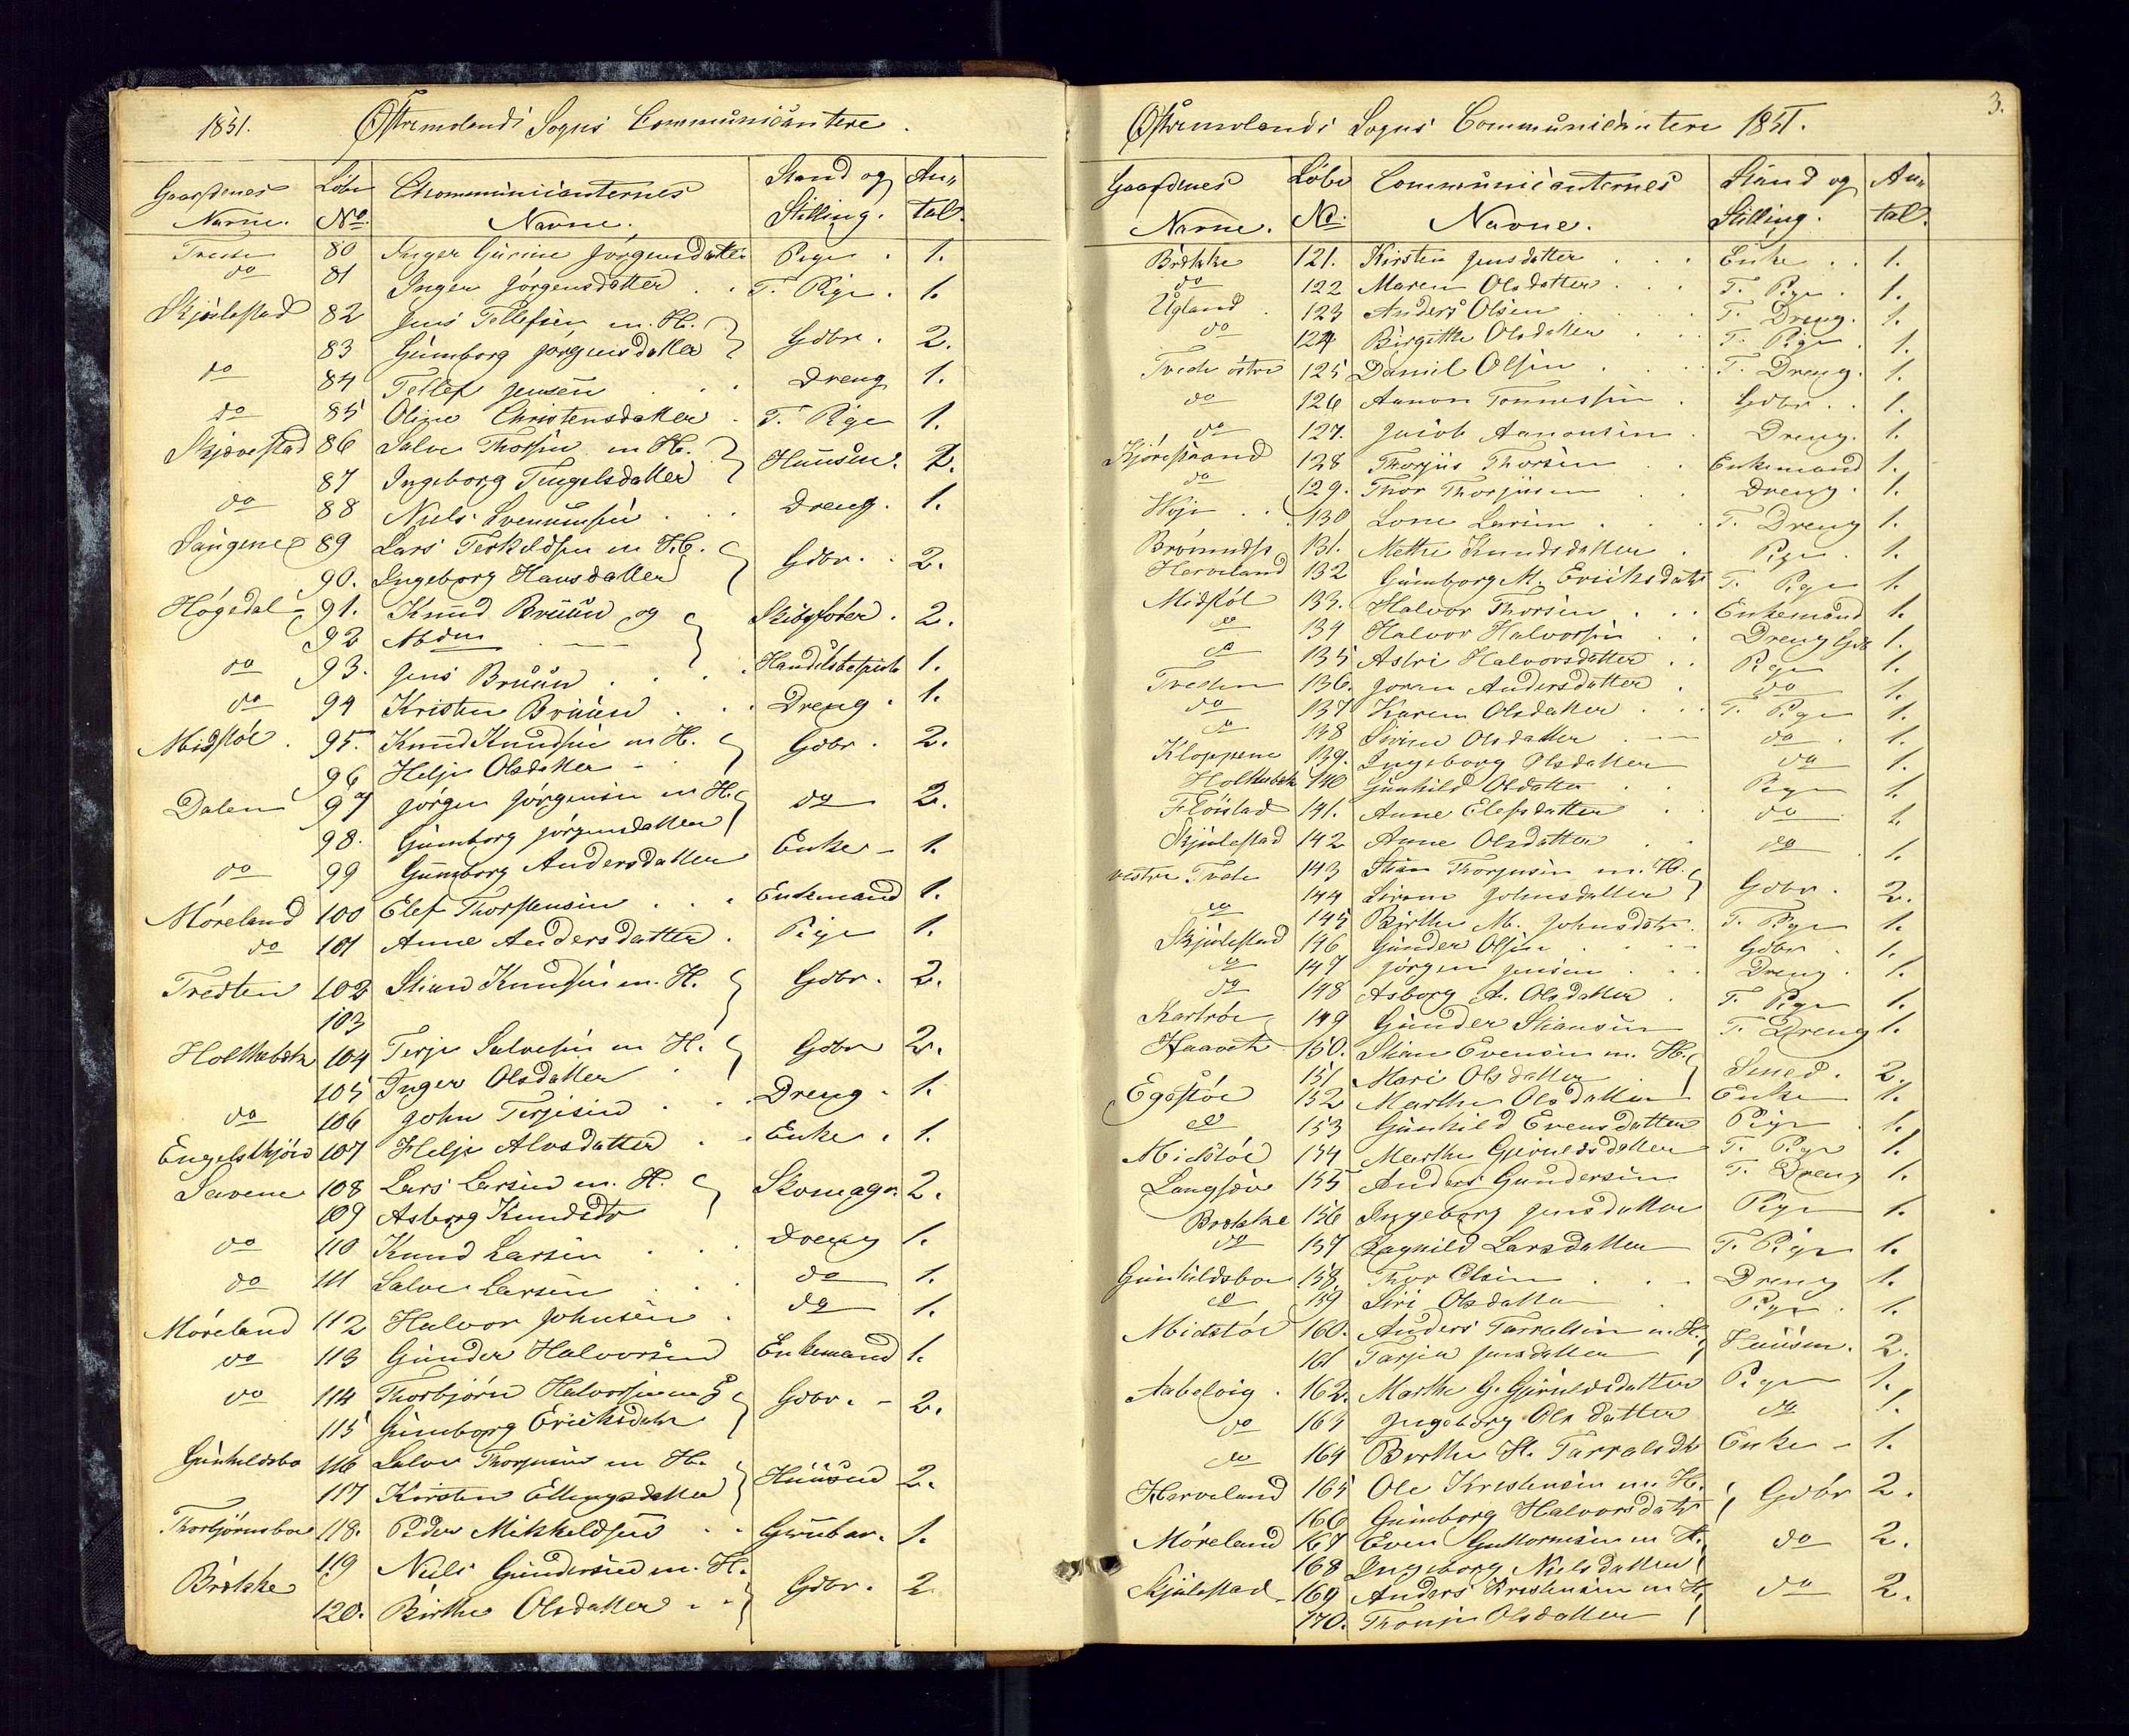 1851. Østremolands Sogns Communicantere.
Gaardenes Løbe Communicanternes Stand og An„
Navne. No. Navne. Stilling. tal.
Treden 80 Inger Gurine Jörgensdatter Pige. 1.
do 81 Inger Jörgensdatter . . T. Pige. 1.
Skjulestad 82 Jens Tellefsen m. H.
83 Gunborg Jörgensdatter Gdbr. 2.
do 84 Tellef Jensen . . . Dreng 1.
do 85 Oline Christensdatter . T. Pige 1.
Skjævestad 86 Salve Thorsen m H.
87 Ingeborg Tengelsdatter Huusm. 2.
do 88 Niels Svenumsen . . . Dreng. 1.
Sangene 89 Lars Terkeldsen m H.
90. Ingeborg Hansdatter Gdbr. . 2.
Högedal 91. Knud Bruun og Skibsförer. 2.
92 Mdm
do 93. Jens Bruun . . . . Handelsbetjent 1.
do 94 Kristen Bruun . . . Dreng. 1.
Midstöl . 95. Knud Knudsen m H. Gdbr. 2.
96 Helje Olsdatter -
Dalen 97 Jörgen Jörgensen m H. do 2.
98. Gunborg Jörgensdatter
do 99 Gunborg Andersdatter Enke - 1.
Möreland 100 Elef Thorstensen . . . Enkemand 1.
do 101 Anne Andersdatter . Pige 1.
Tredten 102 Stian Knudsen m. H. Gdbr. 2.
103
Holtebek 104 Terje Salvesen m H. Gdbr 2.
105 Inger Olsdatter
do 106 John Terjesen . . . Dreng. 1.
Engelskjön 107 Helje Alvsdatter . . Enke. 1.
Savene 108 Lars Larsen m. H. Skomagr. 2.
109 Asborg Knudsdtr
do 110 Knud Larsen . . . Dreng 1.
do 111 Salve Larsen . . do 1.
Möreland 112 Halvor Johnsen . do 1.
do 113 Gunder Halvorsen Enkemand 1.
do 114 Thorbjörn Halvorsen m H Gdbr. - 2.
115 Gunborg Eriksdatr
Gunheldsbo 116 Salve Thorjusen m H.
117 Kirsten Ellingsdatter Huusm 2.
Thorbjörnsboe 118. Peder Mikkeldsen . . 1.
119 Niels Gundersen m. H.
Brække 120. Birthe Olsdatter - - Gdbr. 2
3.
Østremolands Sogns Communicantere 1851.
Gaardenes Løbe Communicanternes Stand og An„
Navne. No. Navne. Stilling. tal.
Brække 121. Kirsten Jensdatter . . . Enke . . 1.
do 122 Maren Olsdatter . . . T. Pige. 1.
Ugland. 123 Anders Olsen . . . T. Dreng. 1.
do 124 Birgithe Olsdatter . . T. Pige. 1.
Trede östre 125 Daniel Olsen . . . T. Dreng. 1.
do 126 Aanon Tonnessen . Gdbr. . 1.
do 127. Jacob Aanonsen . Dreng. 1.
Kjörestrand 128 Thorjus Thorsen . . Enkemand 1.
do 129. Thor Thorjusen . . Dreng. 1.
Höje . . 130 Lone Larsen . . . T. Dreng 1.
131. Mette Knudsdatter . Pige. 1.
Herveland 132 Gunborg M. Eriksdatr T. Pige 1.
Midstöl 133. Halvor Thorsen . . . Enkemand 1.
do 134 Halvor Halvorsen . . Dreng Gdb 1.
do 135 Astri Halvorsdatter . . Pige 1.
Treden 136. Joran Andersdatter . do 1.
do 137 Karen Olsdatter . . . T. Pige 1.
do 138 Olsdatter . - do. 1.
Kloppene 139. Ingeborg Olsdatter do 1.
Holtebek 140 Gunhild Olsdatter . . Pige 1.
Flöistad 141. Anne Elefsdatter . . do 1.
Skjulestad 142 Anne Olsdatter . . do. 1.
vestre Trede 143 Stian Thorjusen m. H.
144 Johnsdatter Gdbr. 2.
do 145 Birthe M. Johnsdatr. T. Pige 1.
Skjulestad 146 Gunder Olsen . . . Gdbr. 1.
do 147 Jörgen Jensen . . . Dreng. 1.
do 148 Asborg A. Olsdatter . T. Pige 1.
149 Gunder Stiansen T. Dreng 1.
150. Stian Evensen m. H.
151 Mari Olsdatter . Smed. 2.
Egestöe 152 Marthe Olsdatter Enke 1.
do 153 Gunhild Evensdatter Pige . 1.
Midstöl 154 Marthe Gjeruldsdatter T. Pige 1.
Langsæe 155 Anders Gundersen T. Dreng 1.
Brække 156 Ingeborg Jensdatter Pige 1.
do 157 Ragnild Larsdatter T. Pige 1.
Gunhildsboe 158. Thor Olsen . . . Dreng 1.
do 159 Siri Olsdatter . Pige. 1.
Midstöl 160. Anders Tarraldsen m. H. Huusm. 2.
161 Tarjer Jensdatter
Aabelvig . 162. Marthe G. Gjeruldsdatter Pige 1.
do 163 Ingeborg Olsdatter do 1.
do 164 Berthe H. Tarraldsdtr Enke - 1.
Herveland 165 Ole Kristensen m. H. Gdbr 2.
166 Gunborg Halvorsdatr
Möreland 167 Even Guttormsen m H. do 2.
168 Ingeborg Nielsdatter
Skjulestad - 169 Anders Kristensen m H. do 2.
170. Thonje Olsdatter